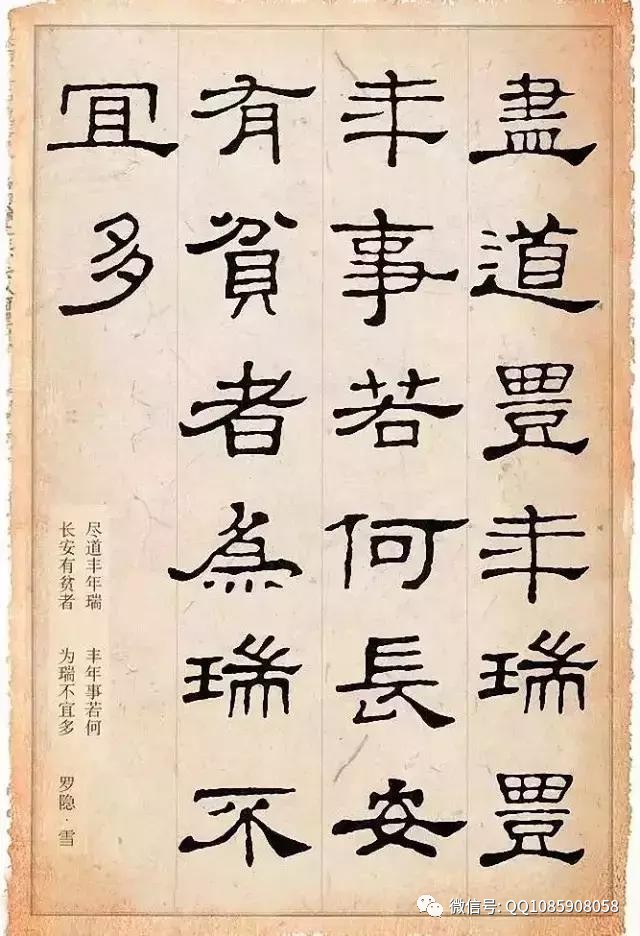 盡道豊年瑞豊
年事若何長安
有貧者為瑞不
宜多
尽道丰年瑞 丰年事若何
长安有贫者 为瑞不宜多 罗隐·雪
微信号: QQ1085908058